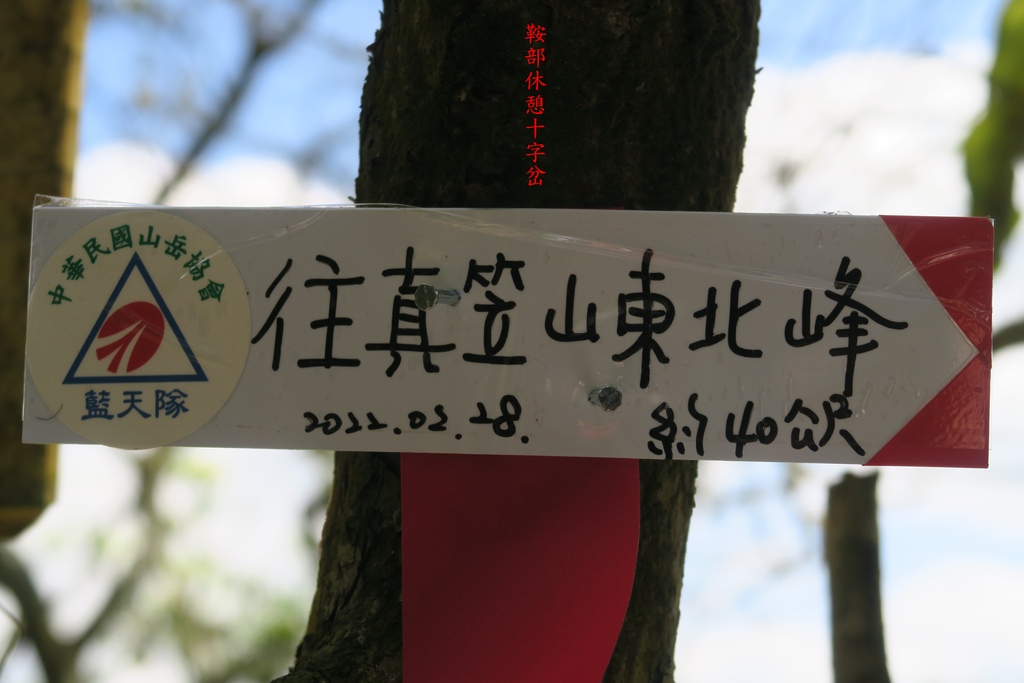 鞍部休憩十字岔
中華民國山岳協會
藍天隊
往真笠山東北峰
2022.02.28.
約40公尺